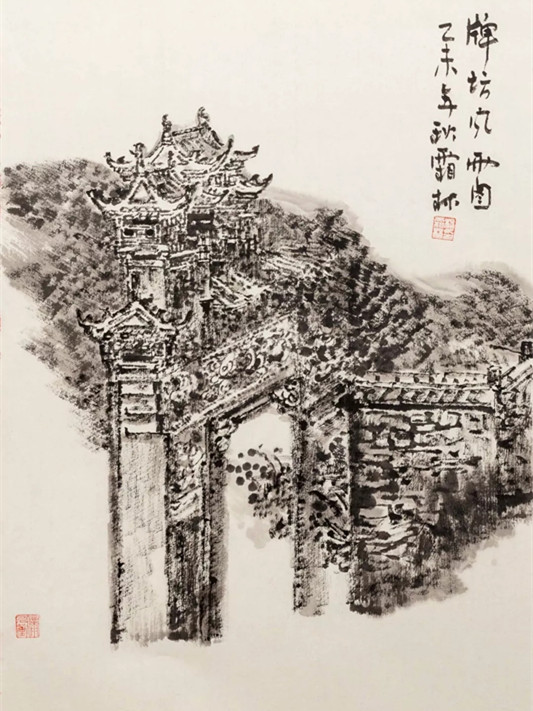 牌坊风雨图
乙未年秋霜林